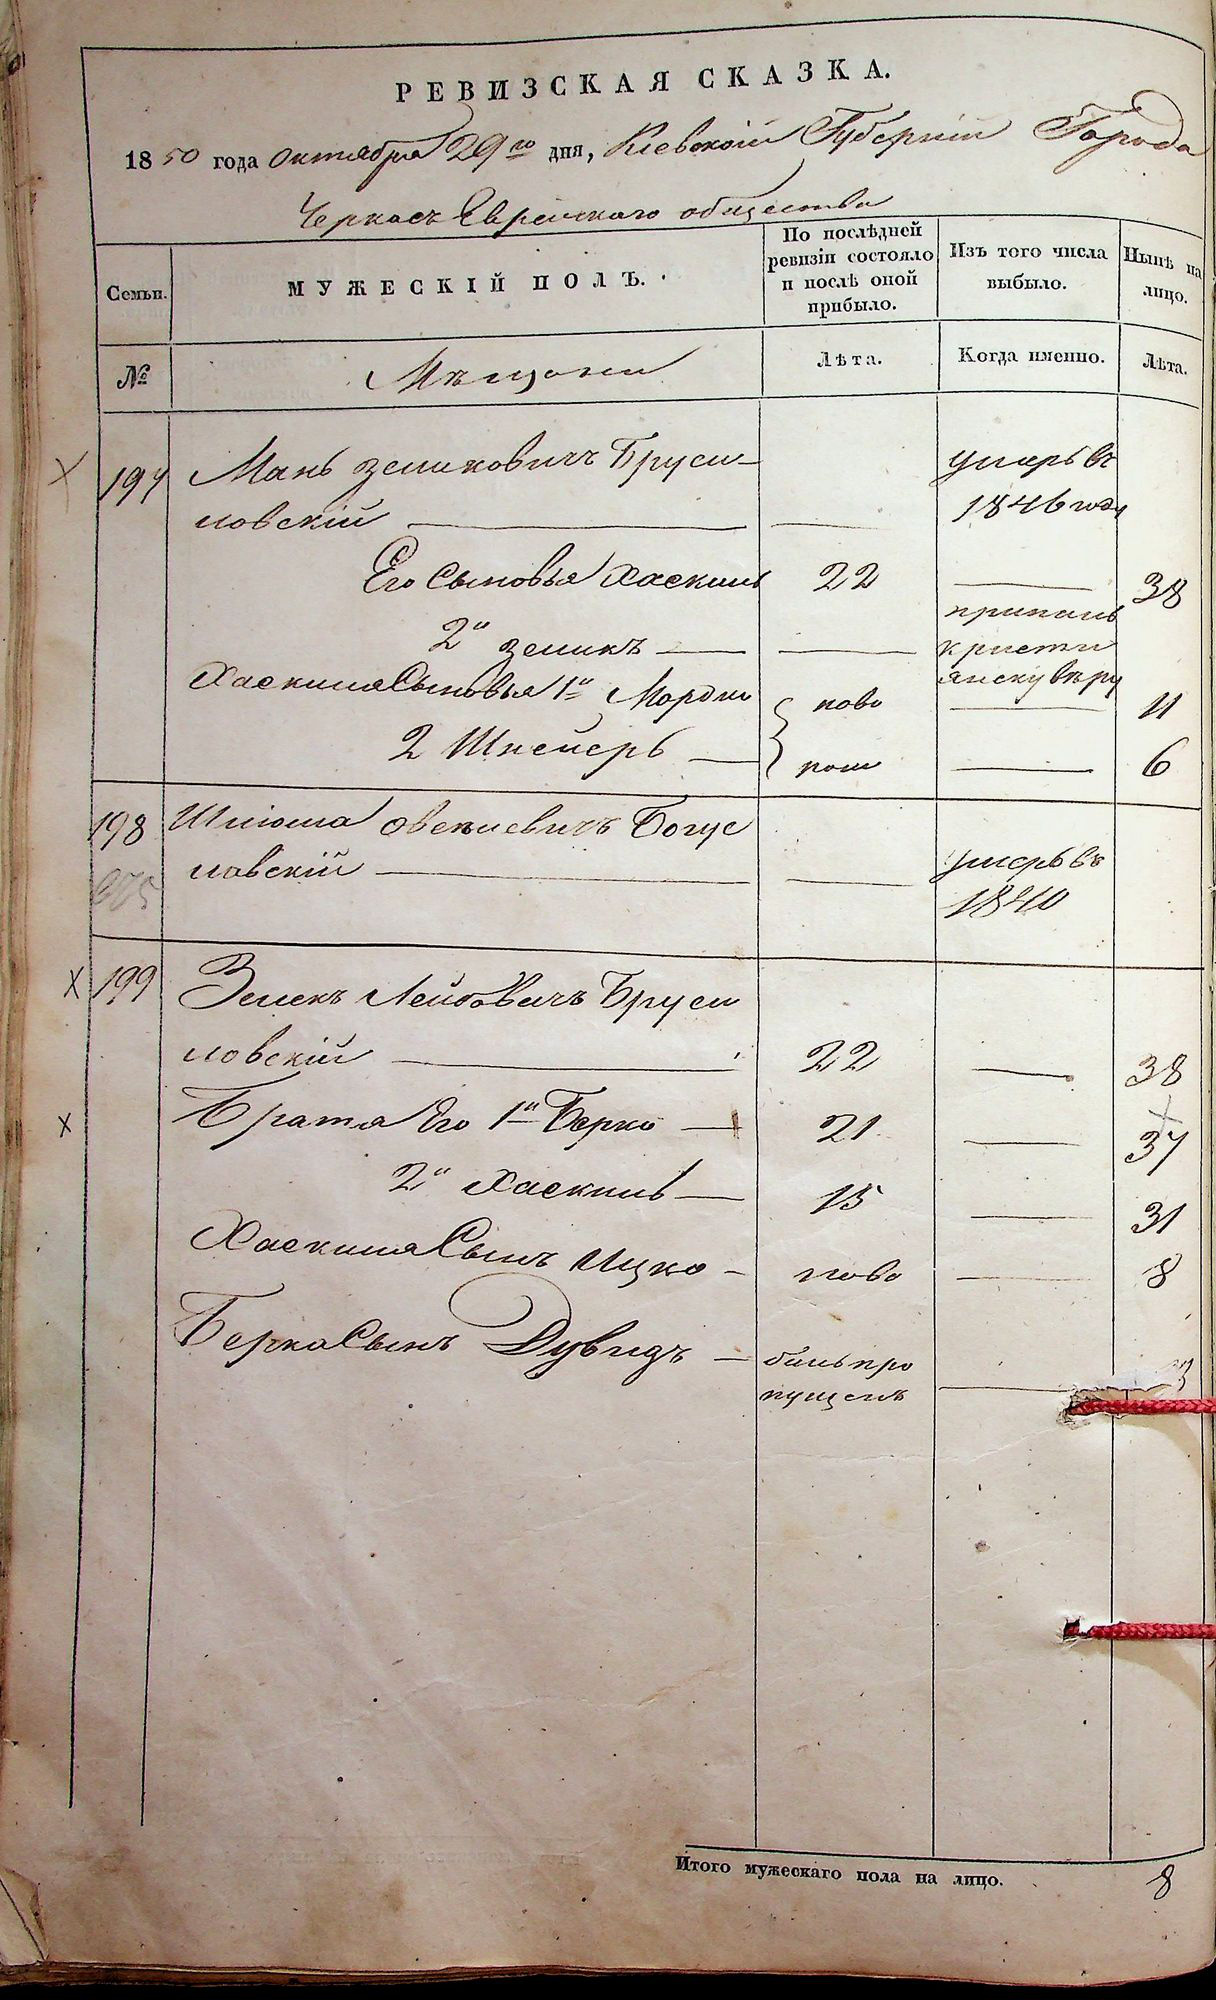 РЕВИЗСКАЯ СКАЗКА.
1850 года октября 29го дня, Кіевской Губерніи Города
Черкасъ Еврейскаго общества
Семьи.
МУЖЕСКІЙ ПОЛЪ.
По послѣдней ревизіи состояло и послѣ оной прибыло.
Изъ того числа выбыло.
Нынѣ на лицо.
№
Мѣщане
Лѣта.
Когда именно.
Лѣта.
197 Мань Земиковичъ Бруси- умеръ въ
ловскій 1846 году
Его Сыновья Хаскиль 22 38
2й Земикъ принялъ
христи
Хаскиля Сыновья 1й Мордко ново 11
янску вѣру
2 Шнеиеръ рож 6
198 Шлiома Овсеиевичъ Богус
лавскій умеръ въ
1840
199 Земекъ Лейбовичъ Бруси
ловскій 22 38
Братя Его 1й Берко 21 37
2й Хаскиль 15 31
Хаскиля Сынъ Ицко ново 8
Берка Сынъ Дувидъ былъ про
пущенъ
Итого мужескаго пола на лицо. 8